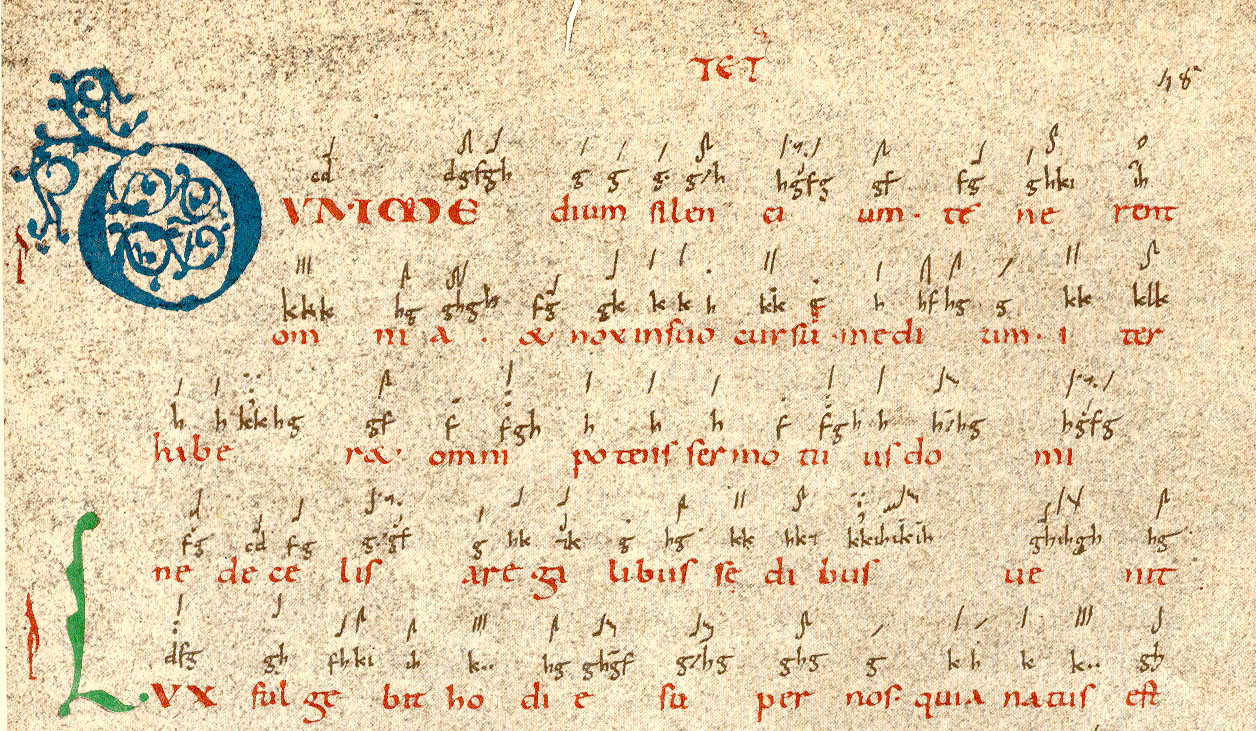 TET
48
cd dgfgh g g g g/h hgfg gf fg ghki ih
DVM ME dium silen ci um. te ne rent
kkk hg ghgh fg gk k k h kk g h hf hg g kk klk
om ni a . & nox in suo cursu. medi um. i ter
h h kkkhg gf f fgh h h h f fgh h h/hg hgfg
habe r&. omni potens sermo tu us do mi
fg cd fg g/gf g hk ik g hg kk
ne de ce lis are gi libus se di bus ue nit
dfg gh fhki ih k.. hg ghgf g/hg ghg g k h k k.. gh
LVX ful ge bit ho di e su per nos. quia natus est